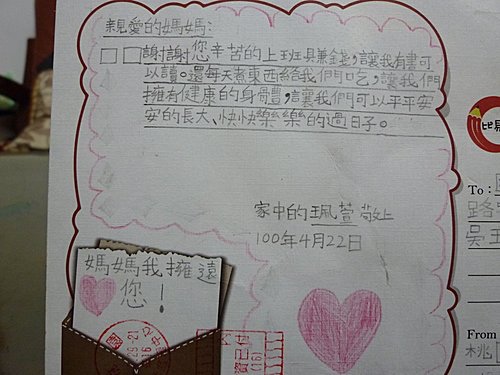 親愛的媽媽：
謝謝您辛苦的上班賺錢，讓我有書可
以讀。還每天煮東西給我們吃，讓我們
擁有健康的身體，讓我們可以平平安
安的長大、快快樂樂的過日子。
家中的珮萱敬上
100年4月22日
媽媽我擁遠
您！
To:
路
吳王
From
桃